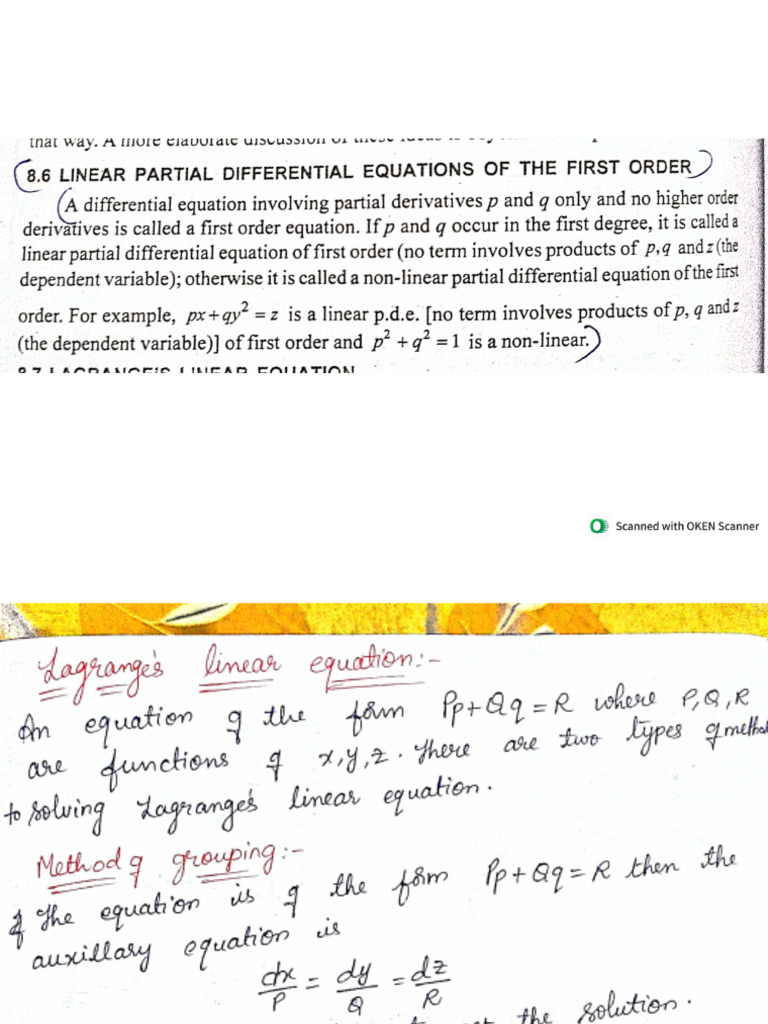 that way. A more elaborate discussion of these ideas is
8.6 LINEAR PARTIAL DIFFERENTIAL EQUATIONS OF THE FIRST ORDER
A differential equation involving partial derivatives p and q only and no higher order
derivatives is called a first order equation. If p and q occur in the first degree, it is called a
linear partial differential equation of first order (no term involves products of p,q and z (the
dependent variable); otherwise it is called a non-linear partial differential equation of the first
order. For example, px+qy² = z is a linear p.d.e. [no term involves products of p, q and z
(the dependent variable)] of first order and p² + q² = 1 is a non-linear.
8.7 LAGRANGE'S LINEAR EQUATION
Scanned with OKEN Scanner
Lagrange's linear equation:-
An equation of the form Pp+Qq=R where P,Q,R
are functions of x,y,z. There are two types of method
to solving Lagrange's linear equation.
Method of grouping:-
If The equation is of the form Pp+Qq=R then the
auxillary equation is
dx/P = dy/Q = dz/R
the solution.